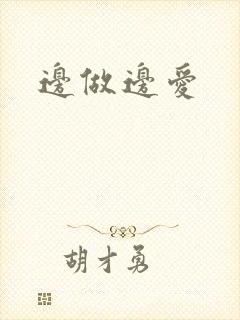 邊做邊愛
胡才勇